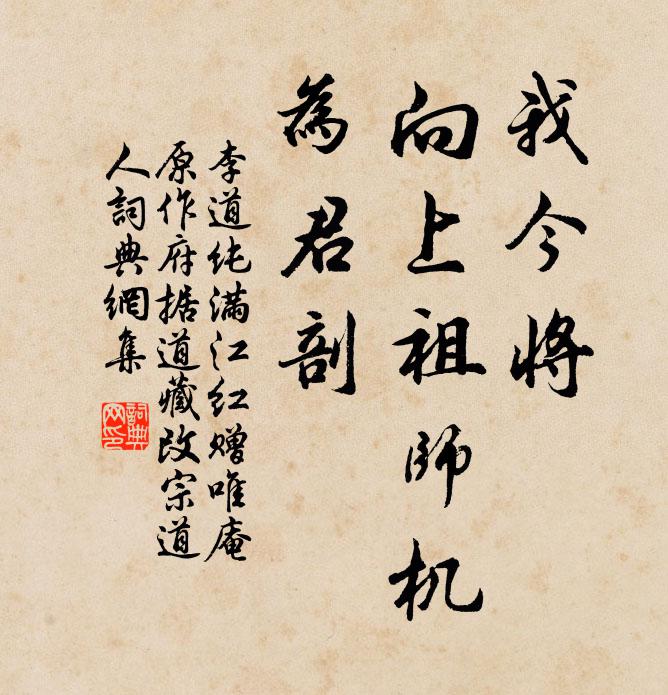 我今将
向上祖师机
為君剖
李道纯满江红赠唯庵
原作府据道藏改宗道
人詞典網集
詞典网印